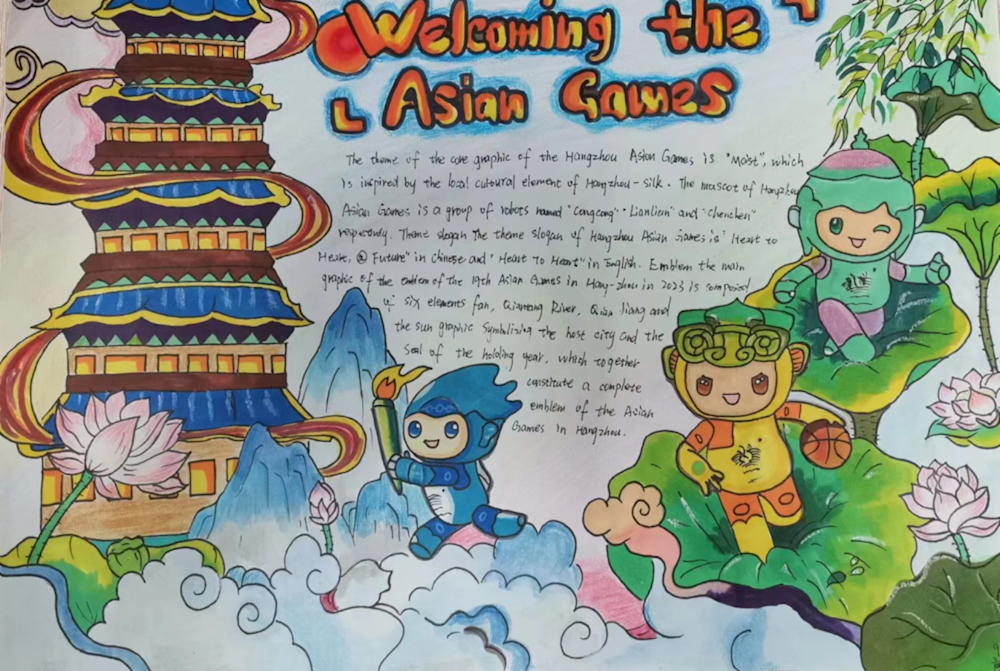 Welcoming the
Asian Games
The theme of the core graphic of the Hangzhou Asian Games is "Moist", which
is inspired by the local cultural element of Hangzhou - silk. The mascot of Hangzhou
Asian Games is a group of robots named "Congcong" "Lianlian" and "Chenchen"
respectively. Theme slogan The theme slogan of Hangzhou Asian Games is "Heart to
Heart, @ Future" in Chinese and "Heart To Heart" in English. Emblem the main
graphic of the emblem of the 19th Asian Games in Hang-zhou in 2023 is composed
of six elements fan, Qiantang River, Qian Jiang and
the sun graphic symbolising the host city and the
Seal of the holding year, which together
constitute a complete
emblem of the Asian
Games in Hangzhou.